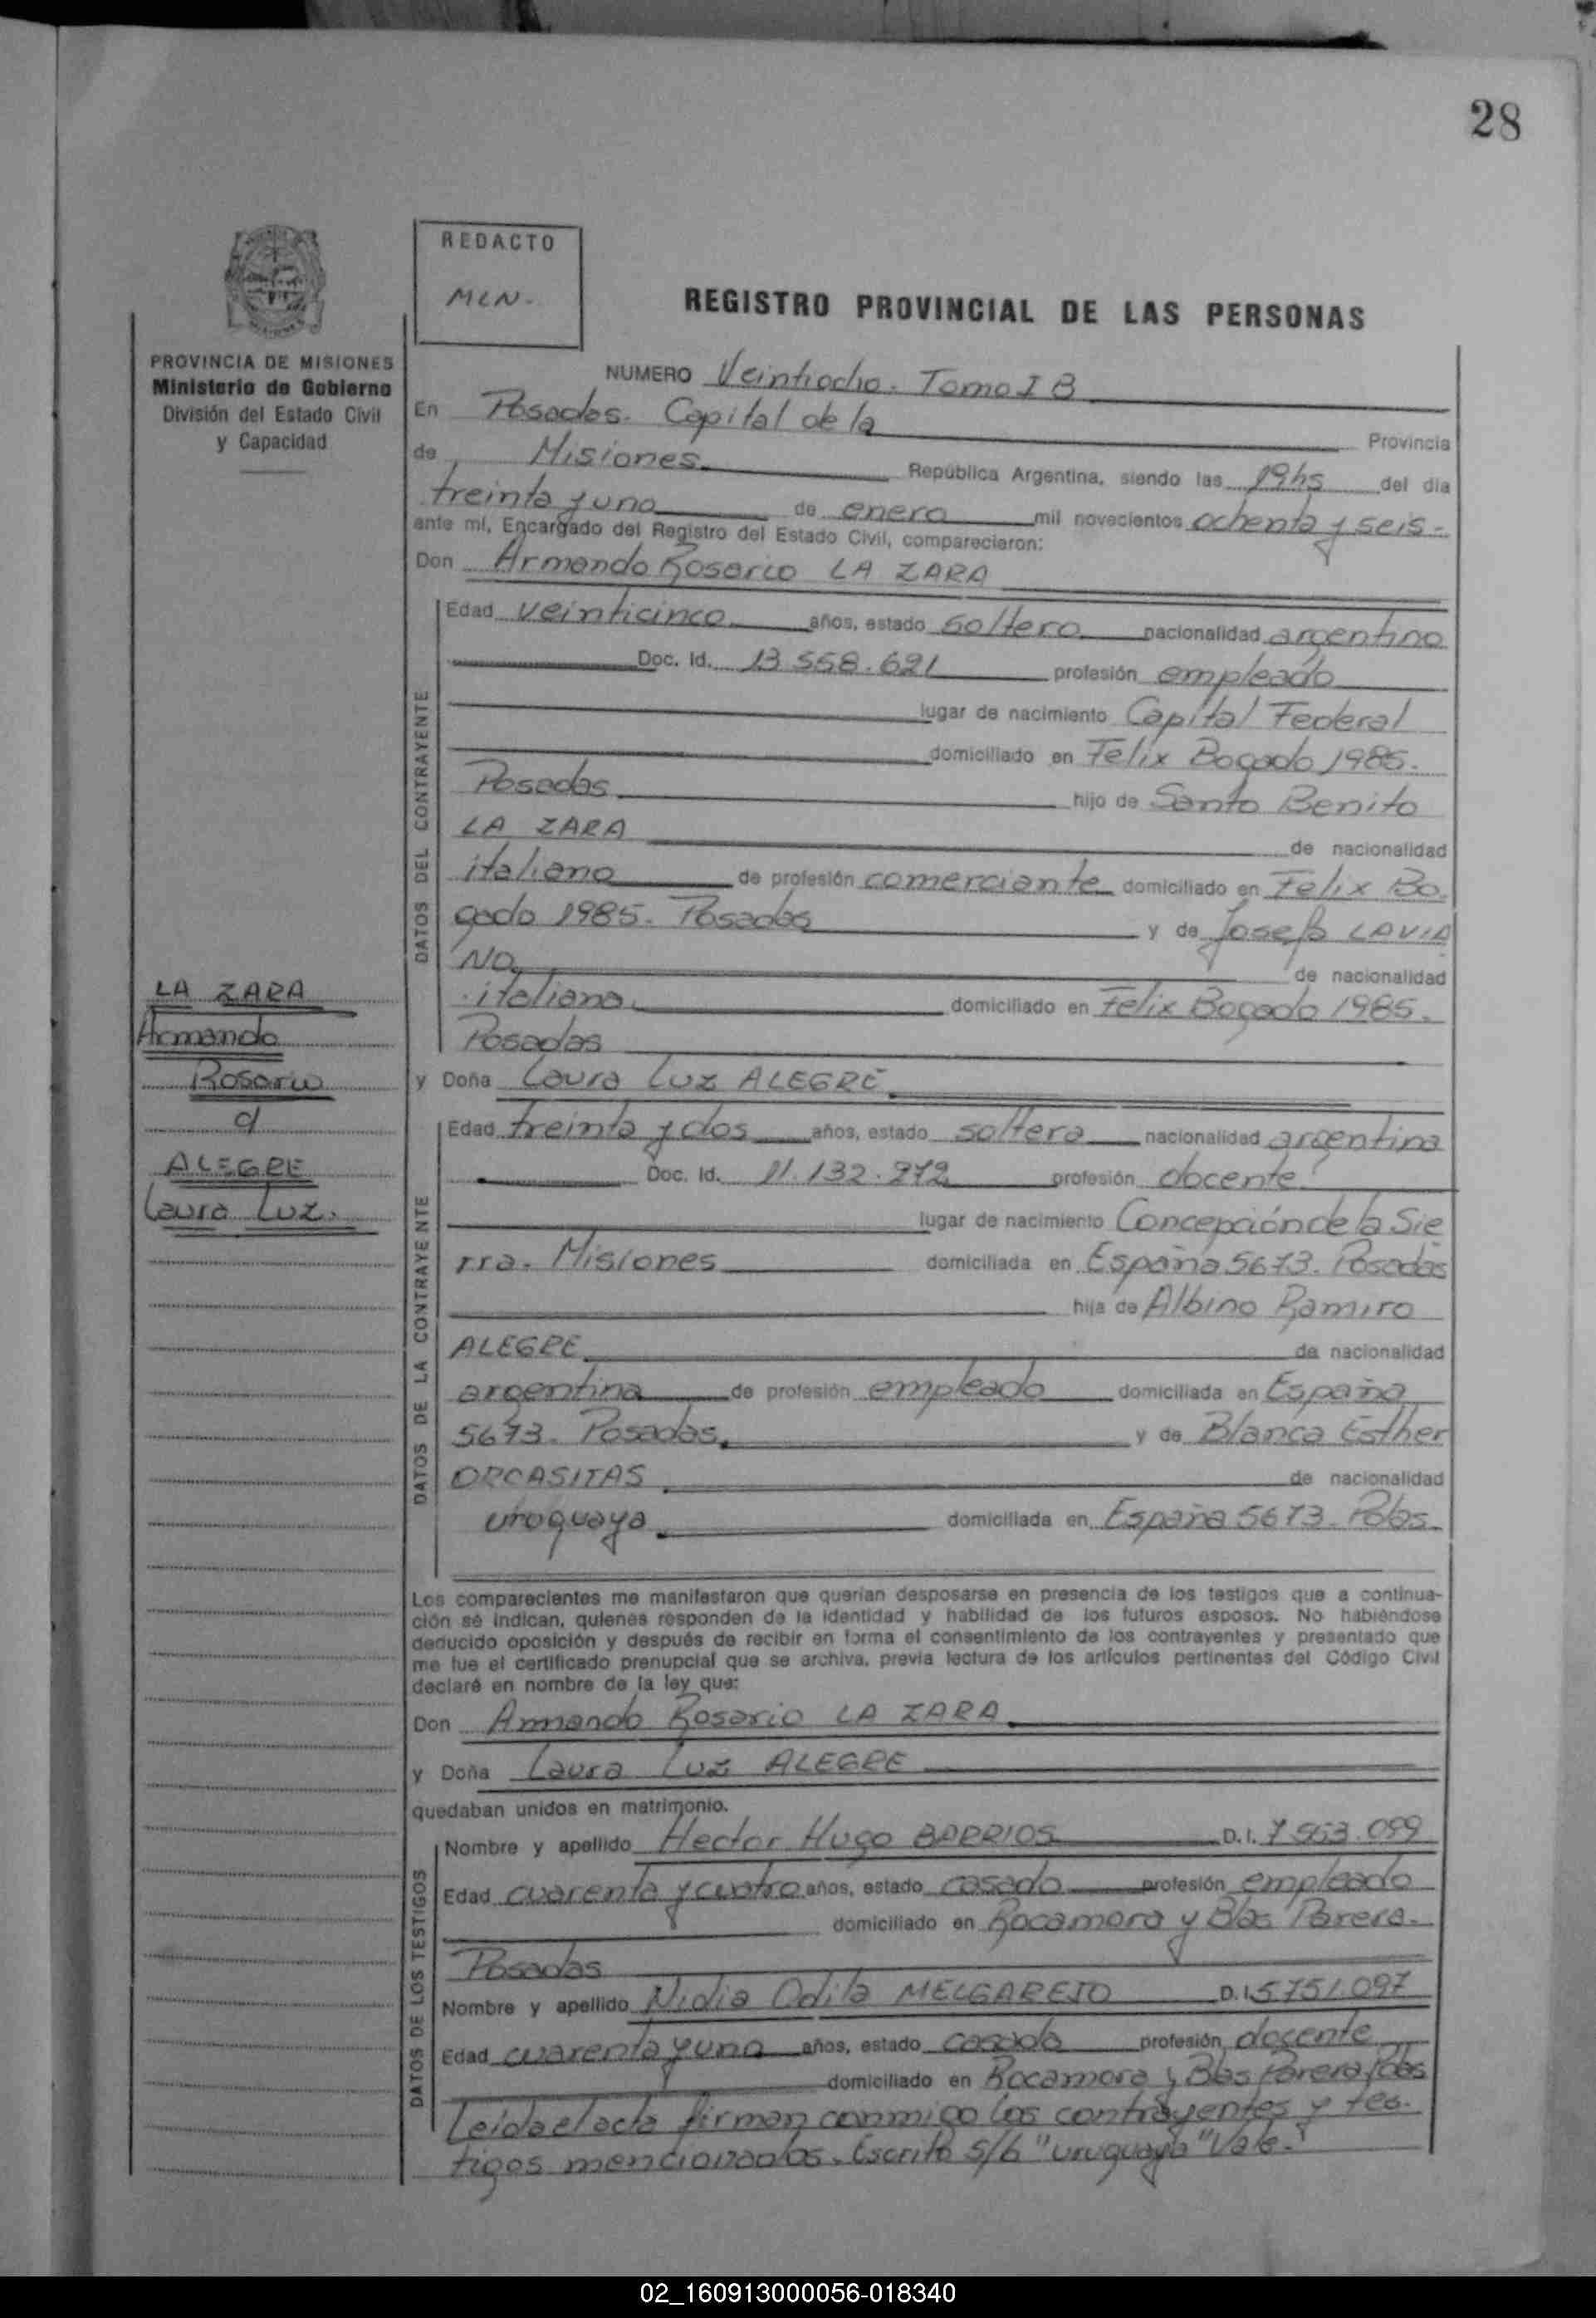 28
REDACTO
MLN.-
REGISTRO PROVINCIAL DE LAS PERSONAS
PROVINCIA DE MISIONES
Ministerio de Gobierno
División del Estado Civil
y Capacidad
NUMERO Veintiocho. Tomo I B
En Posadas. Capital de la Provincia
de Misiones República Argentina, siendo las 19hs del día
treinta y uno de enero mil novecientos ochenta y seis-
ante mí, Encargado del Registro del Estado Civil, comparecieron:
Don Armando Rosario LA ZARA
DATOS DEL CONTRAYENTE
Edad veinticinco años, estado soltero nacionalidad argentino
Doc. Id. 13.558.621 profesión empleado
lugar de nacimiento Capital Federal
domiciliado en Felix Bogado 1985.
Posadas hijo de Santo Benito
LA ZARA de nacionalidad
italiano de profesión comerciante domiciliado en Felix Bo.
gado 1985. Posadas y de Josefa LAVIA
NO de nacionalidad
italiana domiciliado en Felix Bogado 1985.
Posadas
LA ZARA
Armando
Rosario
c/
ALEGRE
Laura Luz.
y Doña Laura Luz ALEGRE
DATOS DE LA CONTRAYENTE
Edad treinta y dos años, estado soltera nacionalidad argentina
Doc. Id. 11.132.272 profesión docente
lugar de nacimiento Concepción de la Sie
rra. Misiones domiciliada en España 5673. Posadas
hija de Albino Ramiro
ALEGRE de nacionalidad
argentina de profesión empleado domiciliada en España
5673. Posadas y de Blanca Esther
ORCASITAS de nacionalidad
uruguaya domiciliada en España 5673. Pdas.
Los comparecientes me manifestaron que querían desposarse en presencia de los testigos que a continua-
ción se indican, quienes responden de la identidad y habilidad de los futuros esposos. No habiéndose
deducido oposición y después de recibir en forma el consentimiento de los contrayentes y presentado que
me fue el certificado prenupcial que se archiva, previa lectura de los artículos pertinentes del Código Civil
declaré en nombre de la ley que:
Don Armando Rosario LA ZARA
y Doña Laura Luz ALEGRE
quedaban unidos en matrimonio.
DATOS DE LOS TESTIGOS
Nombre y apellido Hector Hugo BARRIOS D.I. 7.553.099
Edad cuarenta y cuatro años, estado casado profesión empleado
domiciliado en Rocamora y Blas Parera.
Posadas
Nombre y apellido Nidia Odila MELGAREJO D.I. 5.751.097
Edad cuarenta y una años, estado casada profesión docente
domiciliado en Rocamora y Blas Parera Pdas
Leida el acta firman conmigo los contrayentes y tes.
tigos mencionados. Escrito s/b "uruguaya" Vale.-
02_160913000056-018340